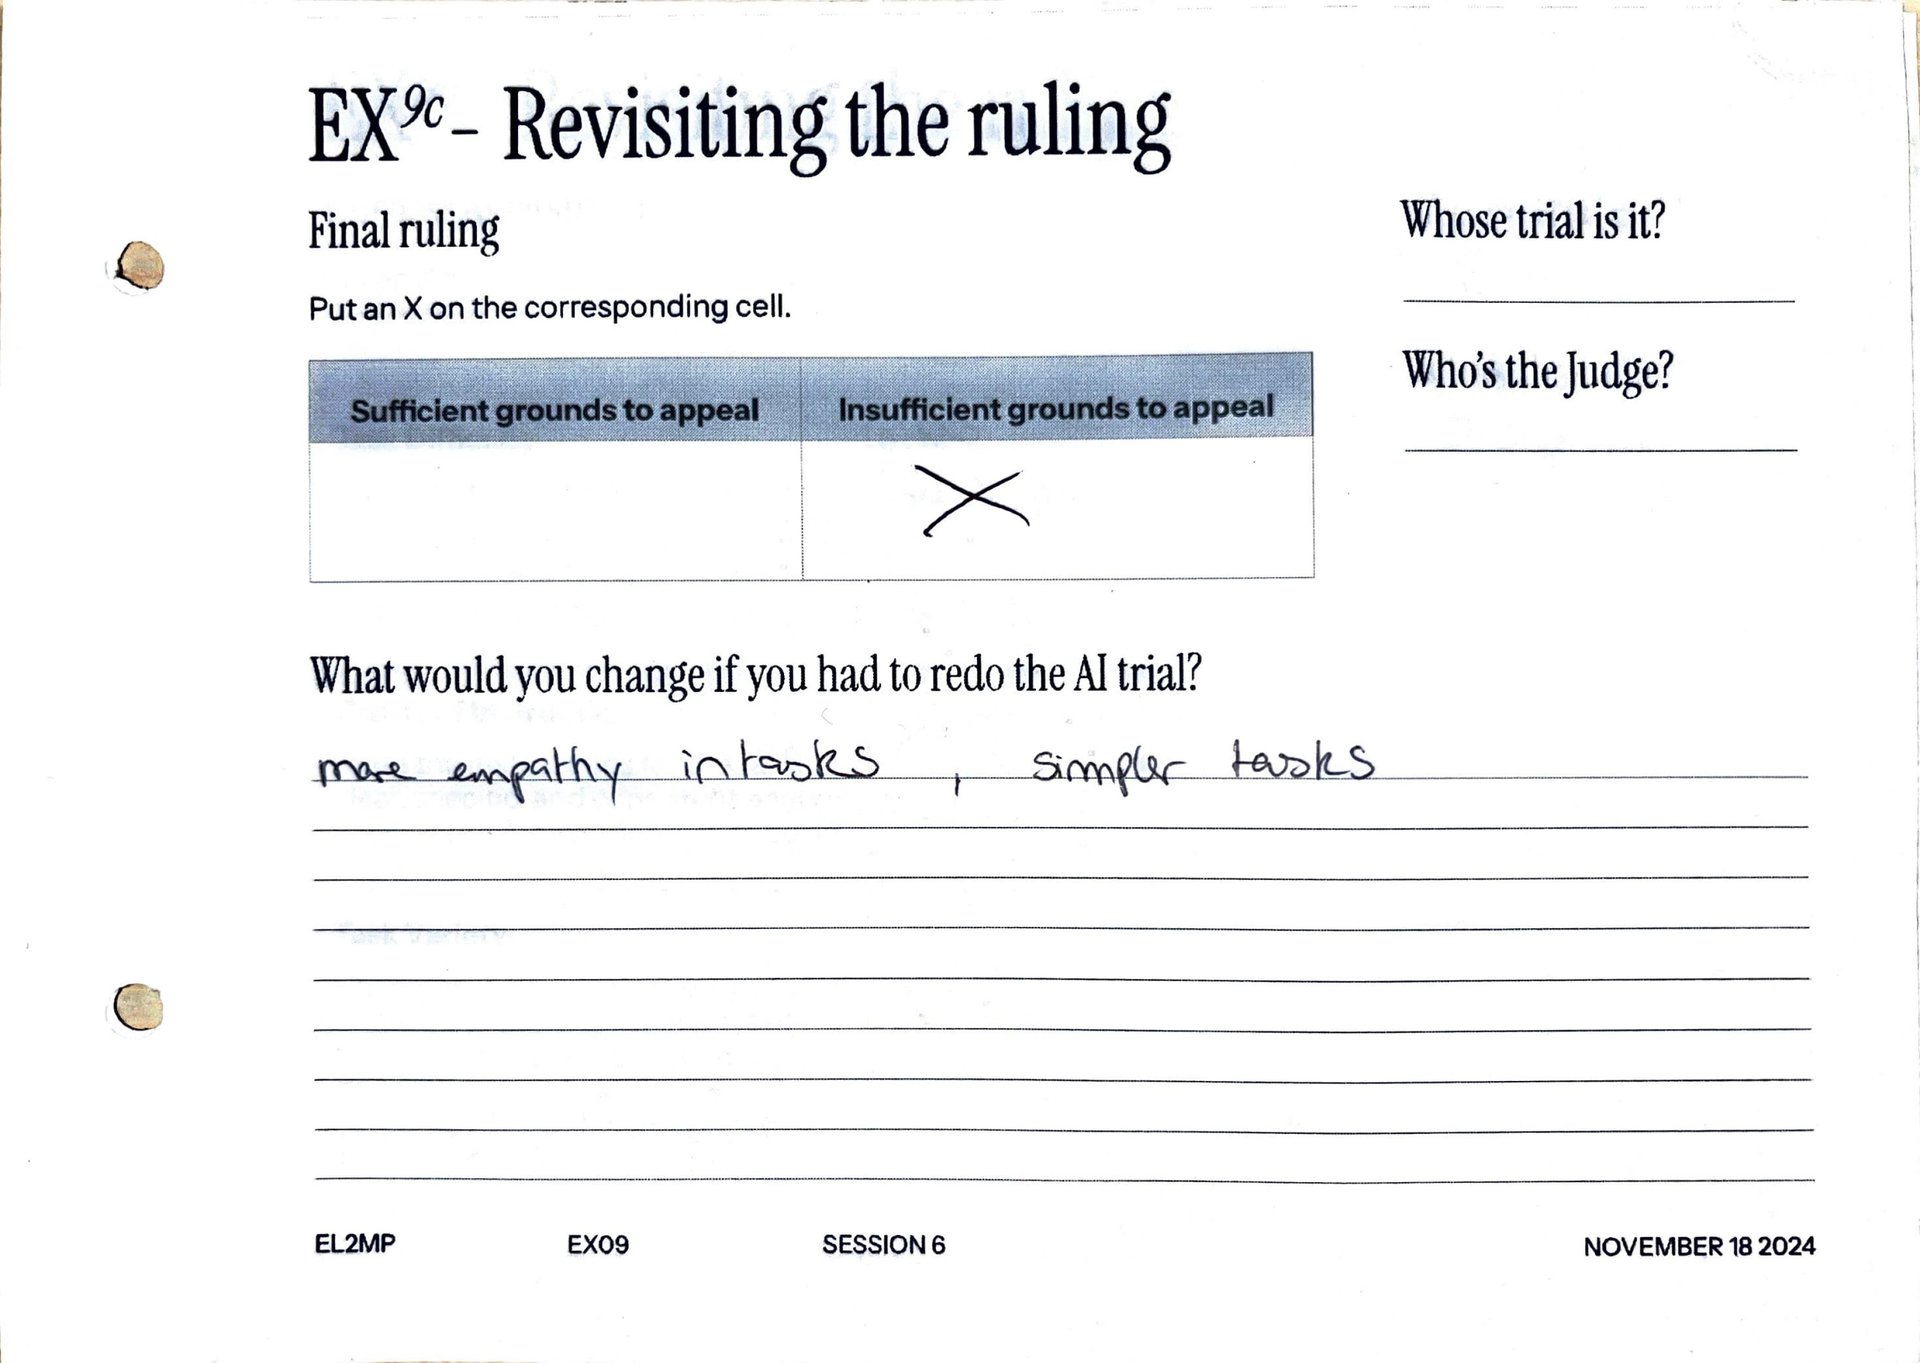 EX9c - Revisiting the ruling
Final ruling
Put an X on the corresponding cell.
Whose trial is it?
Who's the Judge?
Sufficient grounds to appeal
Insufficient grounds to appeal
X
What would you change if you had to redo the AI trial?
more empathy in tasks , simpler tasks
EL2MP
EX09
SESSION 6
NOVEMBER 18 2024